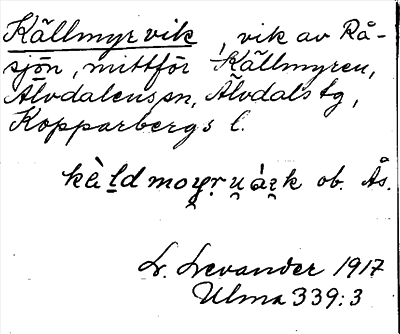 Källmyrvik, vik av Rå-
sjön, mittför Källmyren,
Älvdalens sn, Älvdals tg,
Kopparbergs l.
ob. Ås.
L. Levander 1917
Ulma 339:3